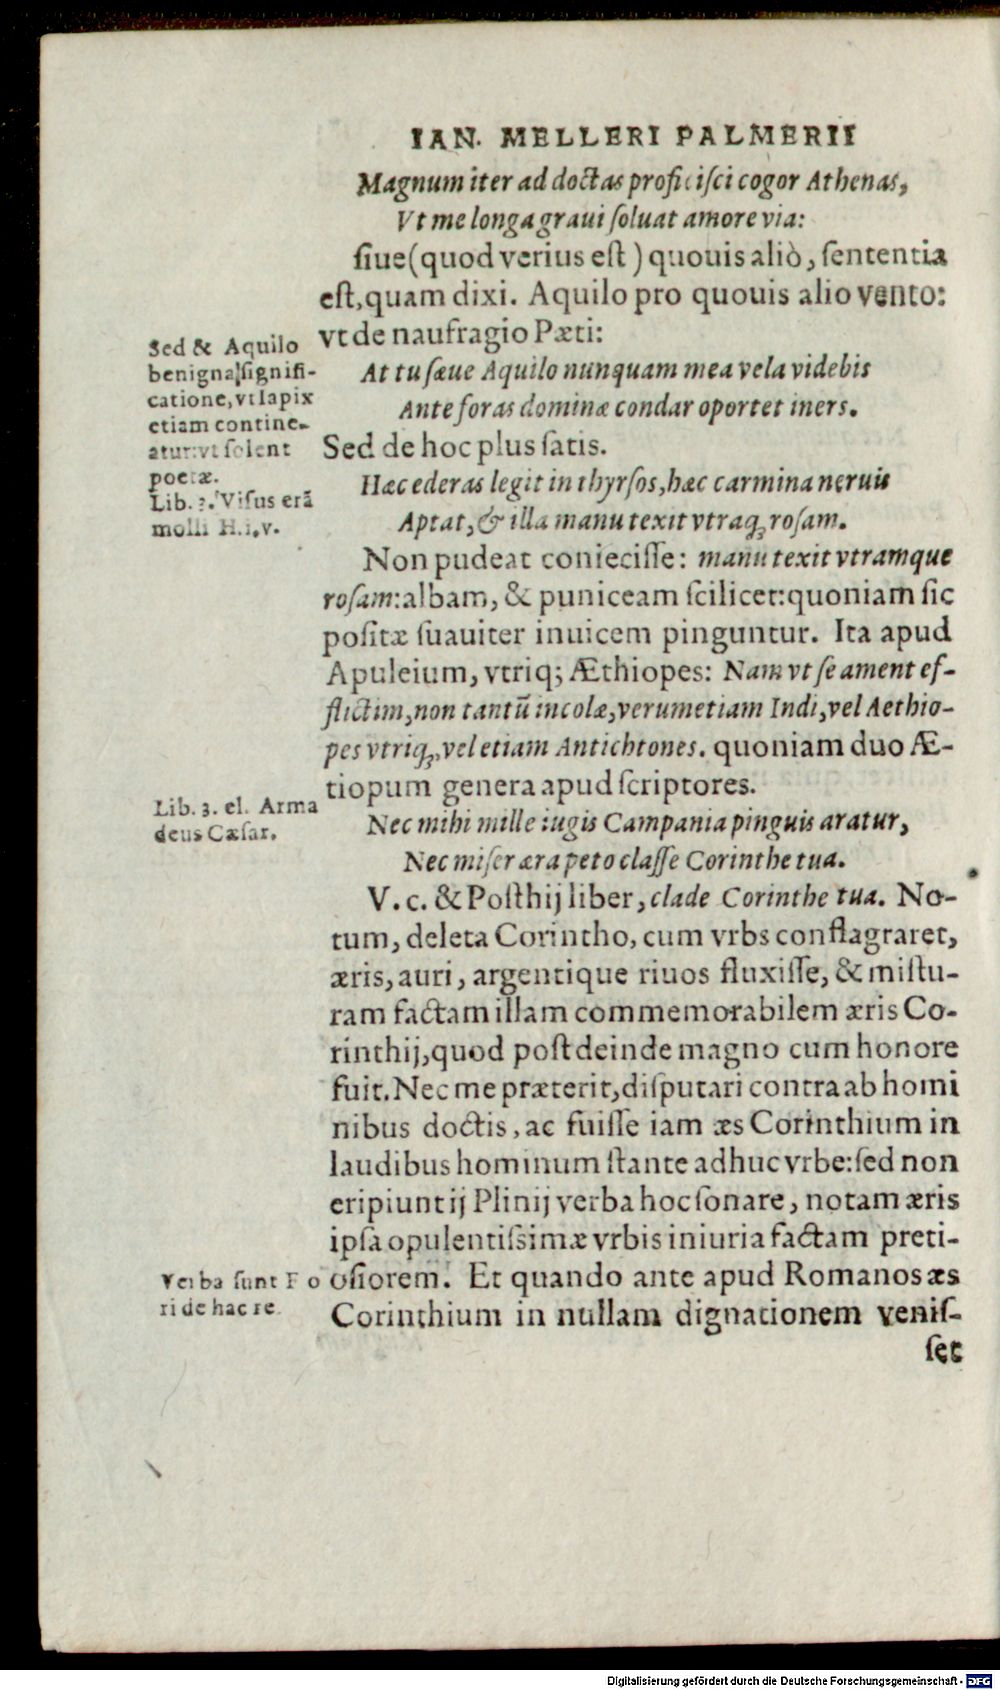 IAN. MELLERI PALMERII
Magnum iter ad doctas proficisci cogor Athenas,
Vt me longa graui ſoluat amore via:
ſiue (quod verius eſt) quouis aliò, ſententia
eſt, quam dixi. Aquilo pro quouis alio vento:
vt de naufragio Pæti:
Sed & Aquilo
benigna ſignifi-
catione, vt Iapix
etiam contine-
atur: vt ſolent
poetæ.
At tu ſæue Aquilo nunquam mea vela videbis
Ante foras dominæ condar oportet iners.
Sed de hoc plus ſatis.
Lib. 3. Viſus erā
molli H.i.v.
Hæc ederas legit in thyrſos, hæc carmina neruis
Aptat, & illa manu texit vtraq; roſam.
Non pudeat conieciſſe: manu texit vtramque
roſam: albam, & puniceam ſcilicet: quoniam ſic
poſitæ ſuauiter inuicem pinguntur. Ita apud
Apuleium, vtriq; Æthiopes: Nam vt ſe ament ef-
flictim, non tantū incolæ, verumetiam Indi, vel Aethio-
pes vtriq;, vel etiam Antichtones. quoniam duo Æ-
tiopum genera apud ſcriptores.
Lib. 3. el. Arma
deus Cæſar.
Nec mihi mille iugis Campania pinguis aratur,
Nec miſer æra peto claſſe Corinthe tua.
V. c. & Poſthij liber, clade Corinthe tua. No-
tum, deleta Corintho, cum vrbs conflagraret,
æris, auri, argentique riuos fluxiſſe, & miſtu-
ram factam illam commemorabilem æris Co-
rinthij, quod poſt deinde magno cum honore
fuit. Nec me præterit, diſputari contra ab homi
nibus doctis, ac fuiſſe iam æs Corinthium in
laudibus hominum ſtante adhuc vrbe: ſed non
eripiunt ij Plinij verba hoc ſonare, notam æris
ipſa opulentiſsimæ vrbis iniuria factam preti-
oſiorem. Et quando ante apud Romanos æs
Corinthium in nullam dignationem veniſ-
Verba ſunt Flo
ri de hac re.
ſet
Digitalisierung gefördert durch die Deutsche Forschungsgemeinschaft - DFG